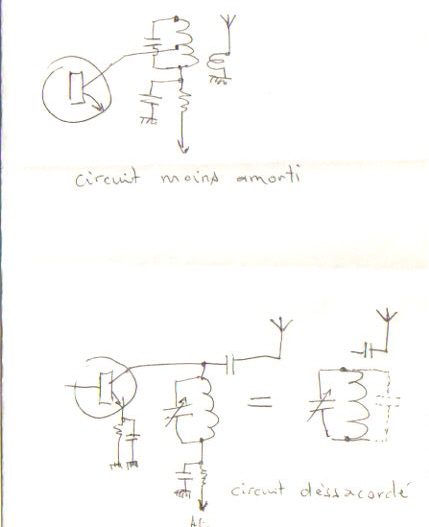 circuit moins amorti
circuit déssacordé